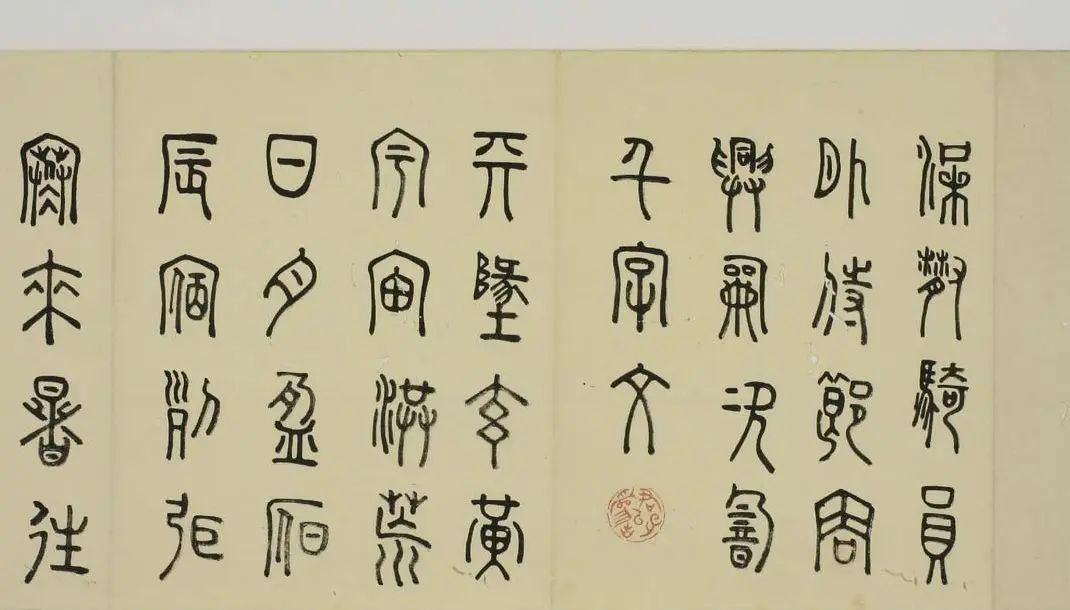 梁散騎員
外侍郎周
興嗣次韻
千字文
天地玄黃
宇宙洪荒
日月盈昃
辰宿列張
寒來暑往